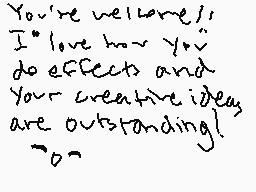 You're welcome!!
I love how you
do effects and
your creative ideas
are outstanding!